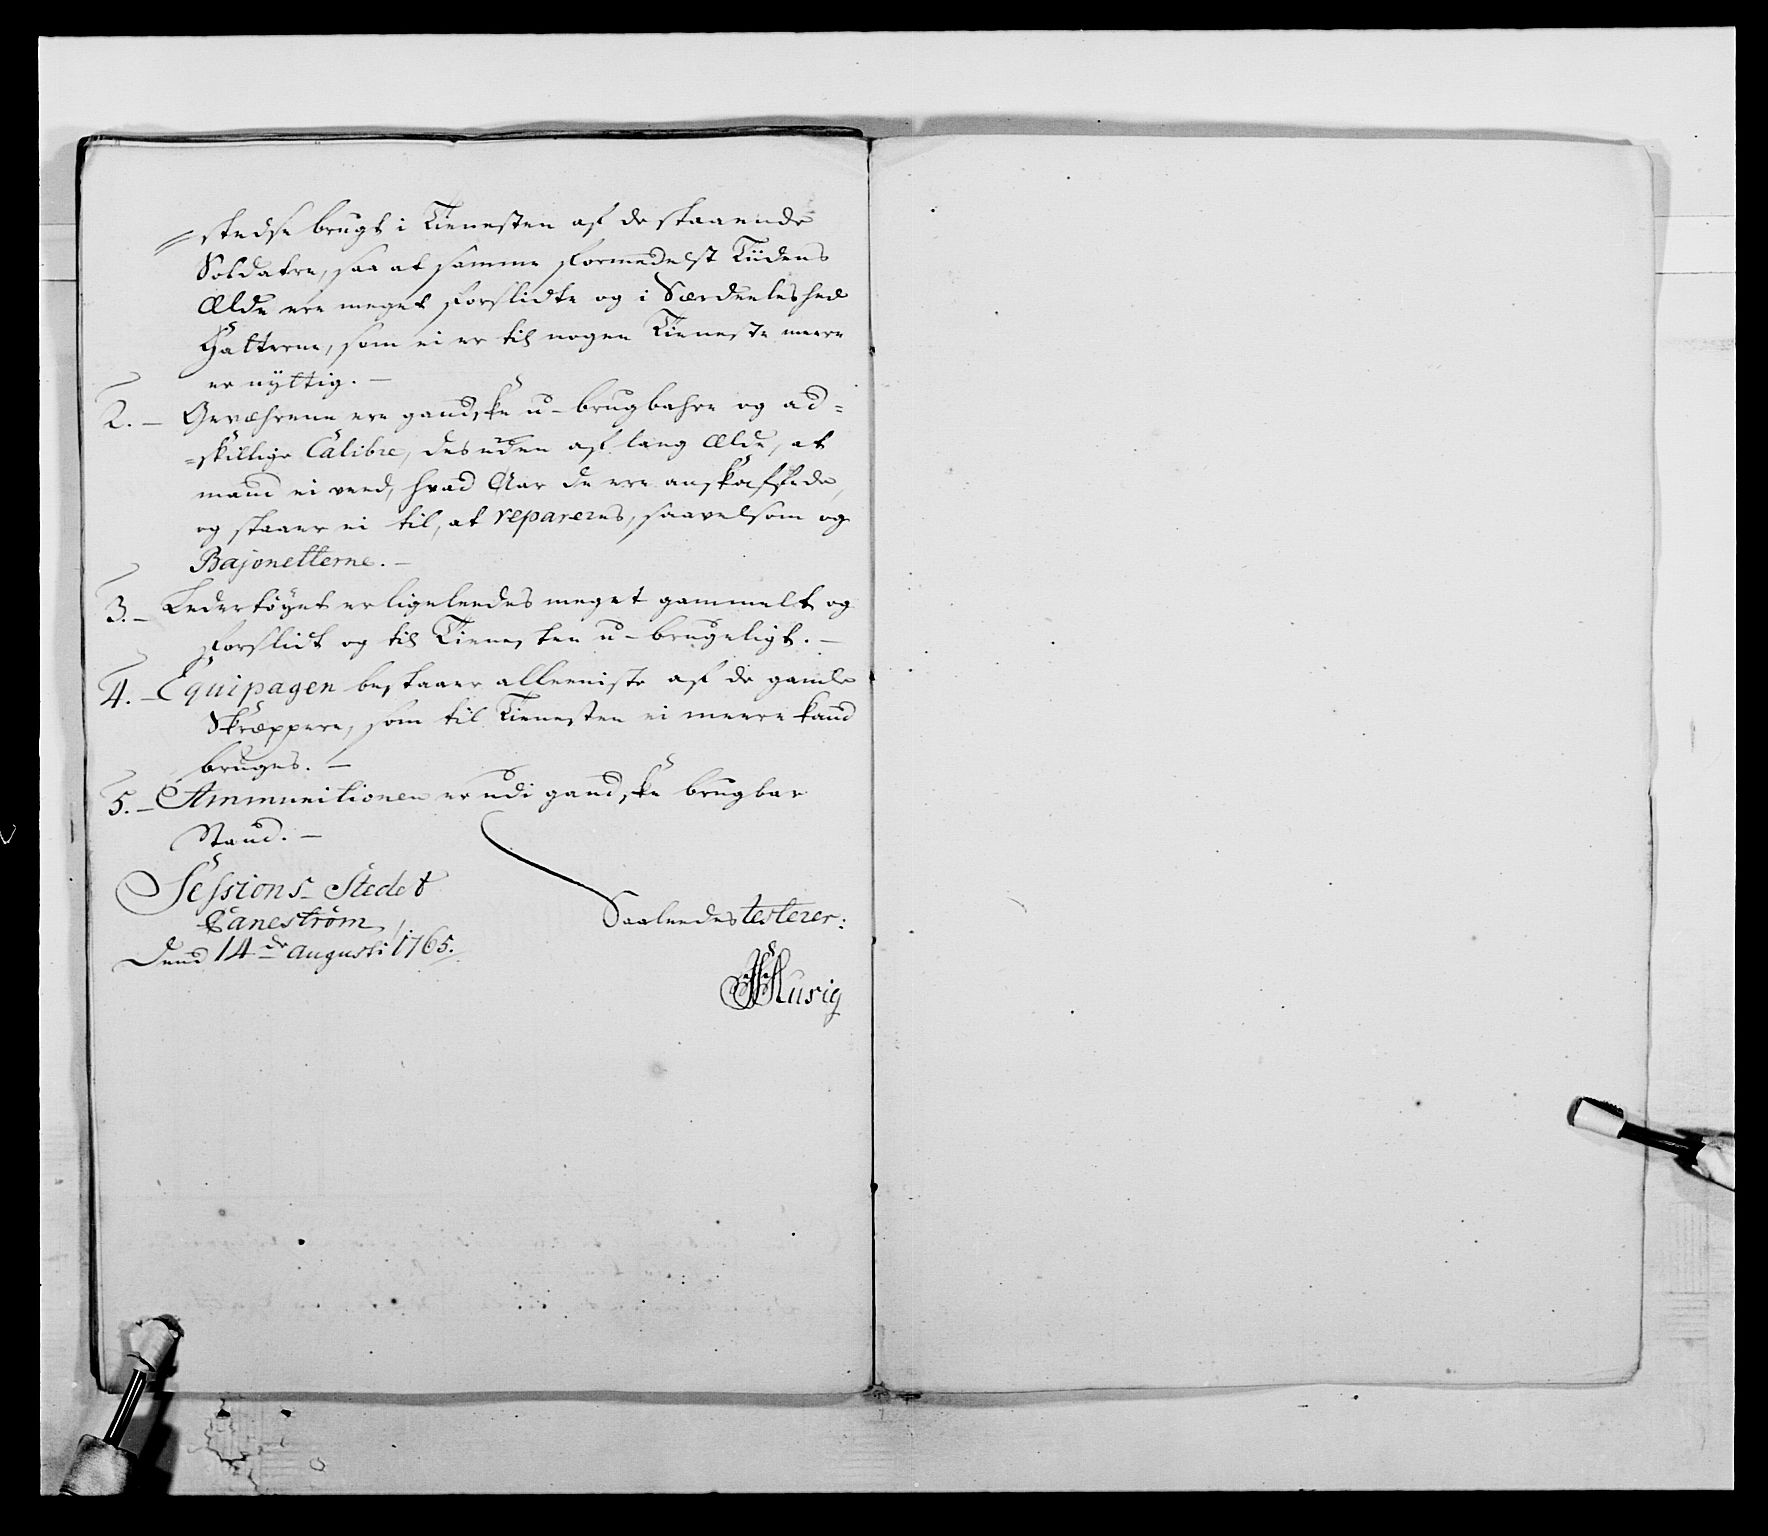 stedse brugt i Tienesten af de staaende
Soldater, saa at samme formedelst Tiidens
Ælde ere meget forslidte og i Særdeeleshed
Hatterne, som ei er til nogen Tieneste meere
er nyttig. —
2. — Geværerne ere gandske u-brugbahre og ad=
=skillige Calibre, desuden af lang Ælde, at
mand ei veed, hvad Aar de ere anskaffede,
og staaer ei til, at repareres, saavelsom og
Bajonetterne. —
3. — Ledertøyet er ligeleedes meget gammelt og
forslidt og til Tienesten u-brugeligt. —
4. — Equipagen bestaaer alleeniste af de gamle
Skræpper, som til Tienesten ei meere kand
bruges. —
5. — Ammunitionen er udi gandske brugbar
Stand. —
Sessions-Stedet
Tanestrøm,
Dend 14de Augusti 1765.
Saaleedes testerer:
Husig